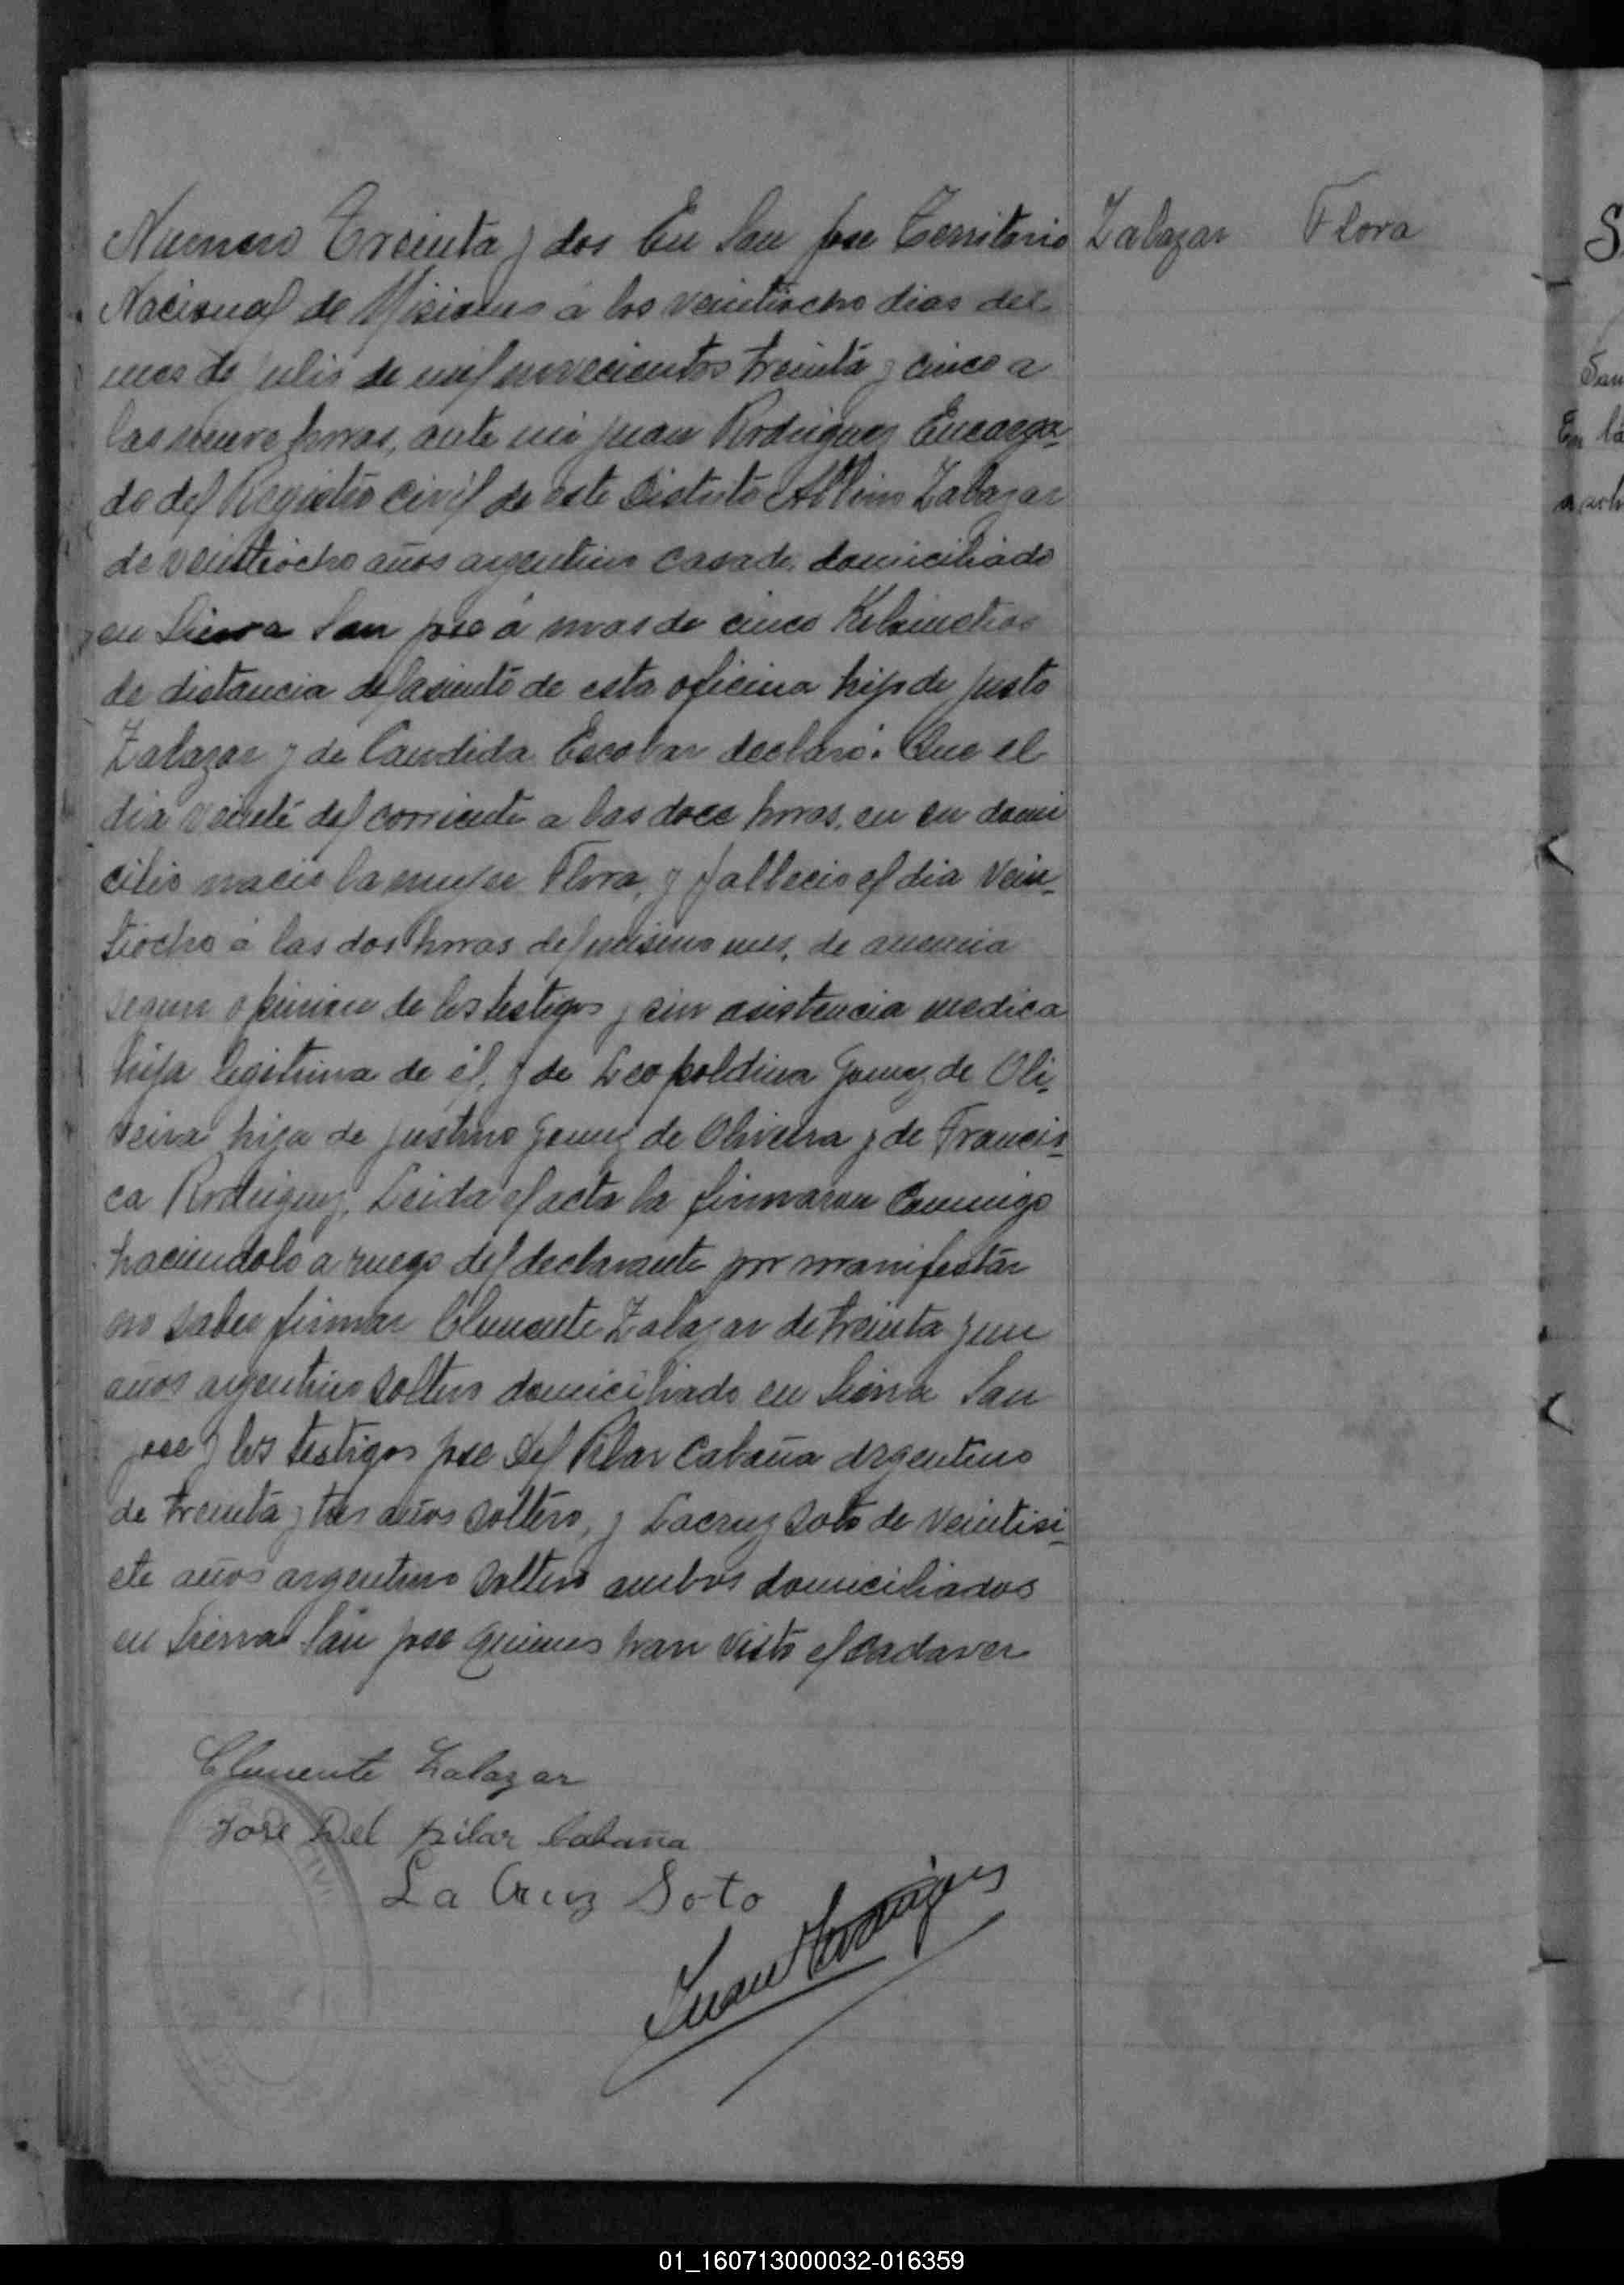 Numero Treinta y dos En San Jose Territorio
Zalazar Flora
Nacional de Misiones á los veintiocho dias del
mes de Julio de mil novecientos treinta y cinco a
las nueve horas, ante mi Juan Rodriguez Encarga-
do del Registro civil de este Distrito Albino Zalazar
de veintiocho años argentino casado domiciliado
en Sierra San Jose á mas de cinco Kilometros
de distancia del asiento de esta oficina hijo de Justo
Zalazar y de Candida Escobar declaró: Que el
dia veinte del corriente a las doce horas, en su domi
cilio nacio la mujer Flora, y fallecio el dia Vein-
tiocho á las dos horas del mismo mes, de anemia
segun opinion de los testigos y sin asistencia medica
hija legitima de él, y de Leopoldina Gomez de Oli-
veira hija de Justino Gomez de Oliveira y de Francis-
ca Rodriguez, Leida el acta la firmaron Conmigo
haciendolo a ruego del declarante por manifestar
no saber firmar Clemente Zalazar de treinta y un
años argentino soltero domiciliado en Sierra San
Jose y los testigos Jose Del Pilar Cabaña argentino
de treinta y tres años soltero, y Lacruz Soto de veintisi-
ete años argentino soltero ambos domiciliados
en Sierra San Jose quienes han visto el cadaver
Clemente Zalazar
José Del pilar Cabaña
La Cruz Soto
Juan Rodriguez
S
San
En la
01_160713000032-016359